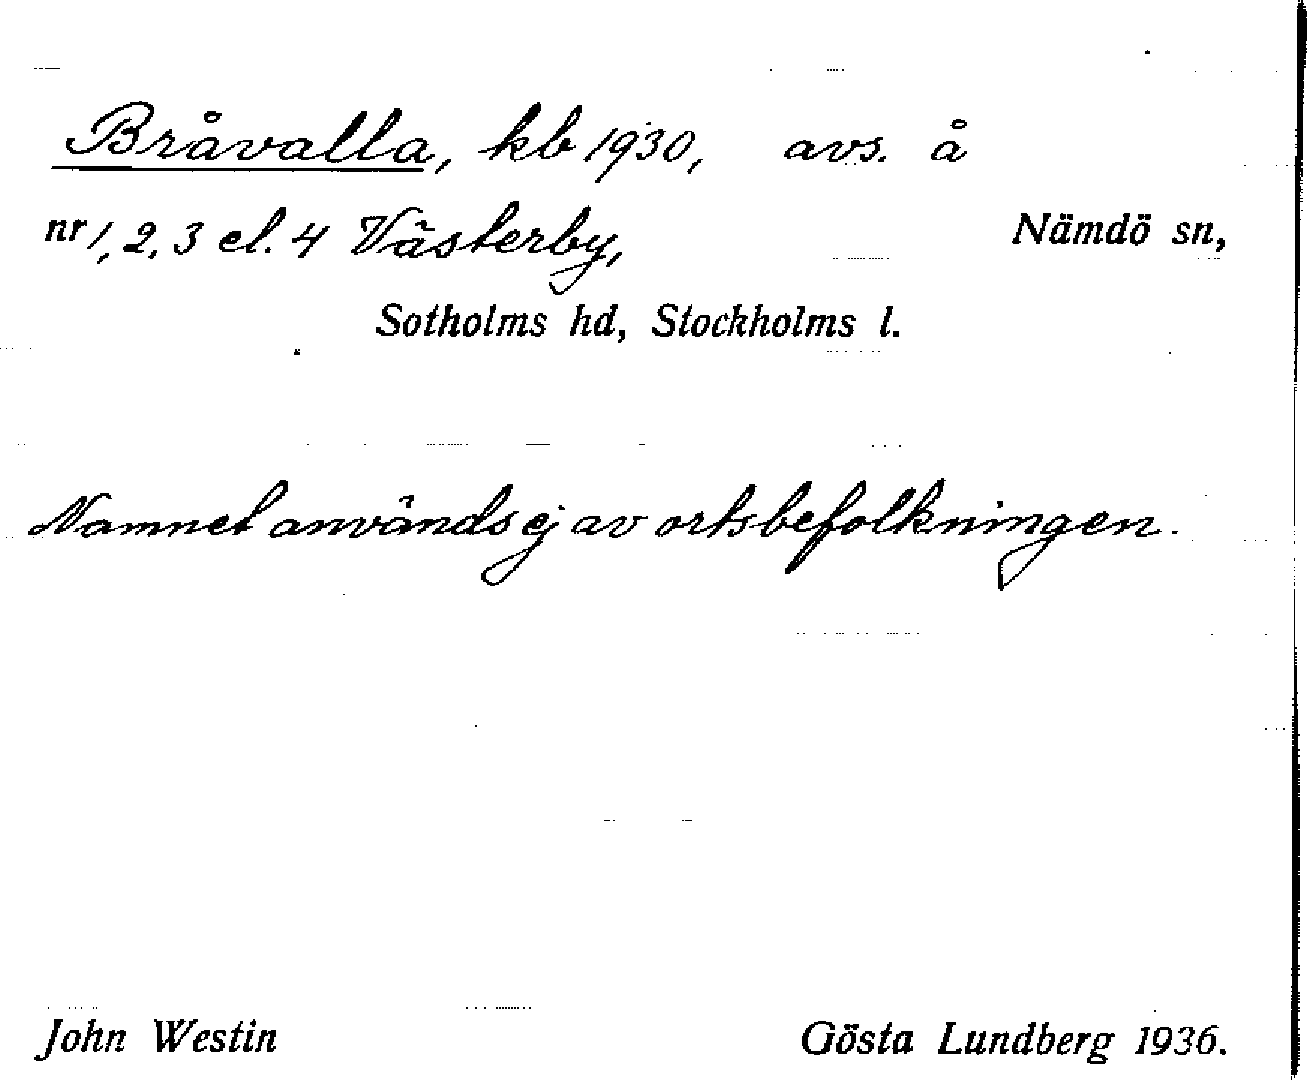 Bråvalla, kb 1930, avs. å
nr 1, 2, 3 el. 4 Västerby, Nämdö sn,
Sotholms hd, Stockholms l.
Namnet används ej av ortsbefolkningen.
John Westin Gösta Lundberg 1936.